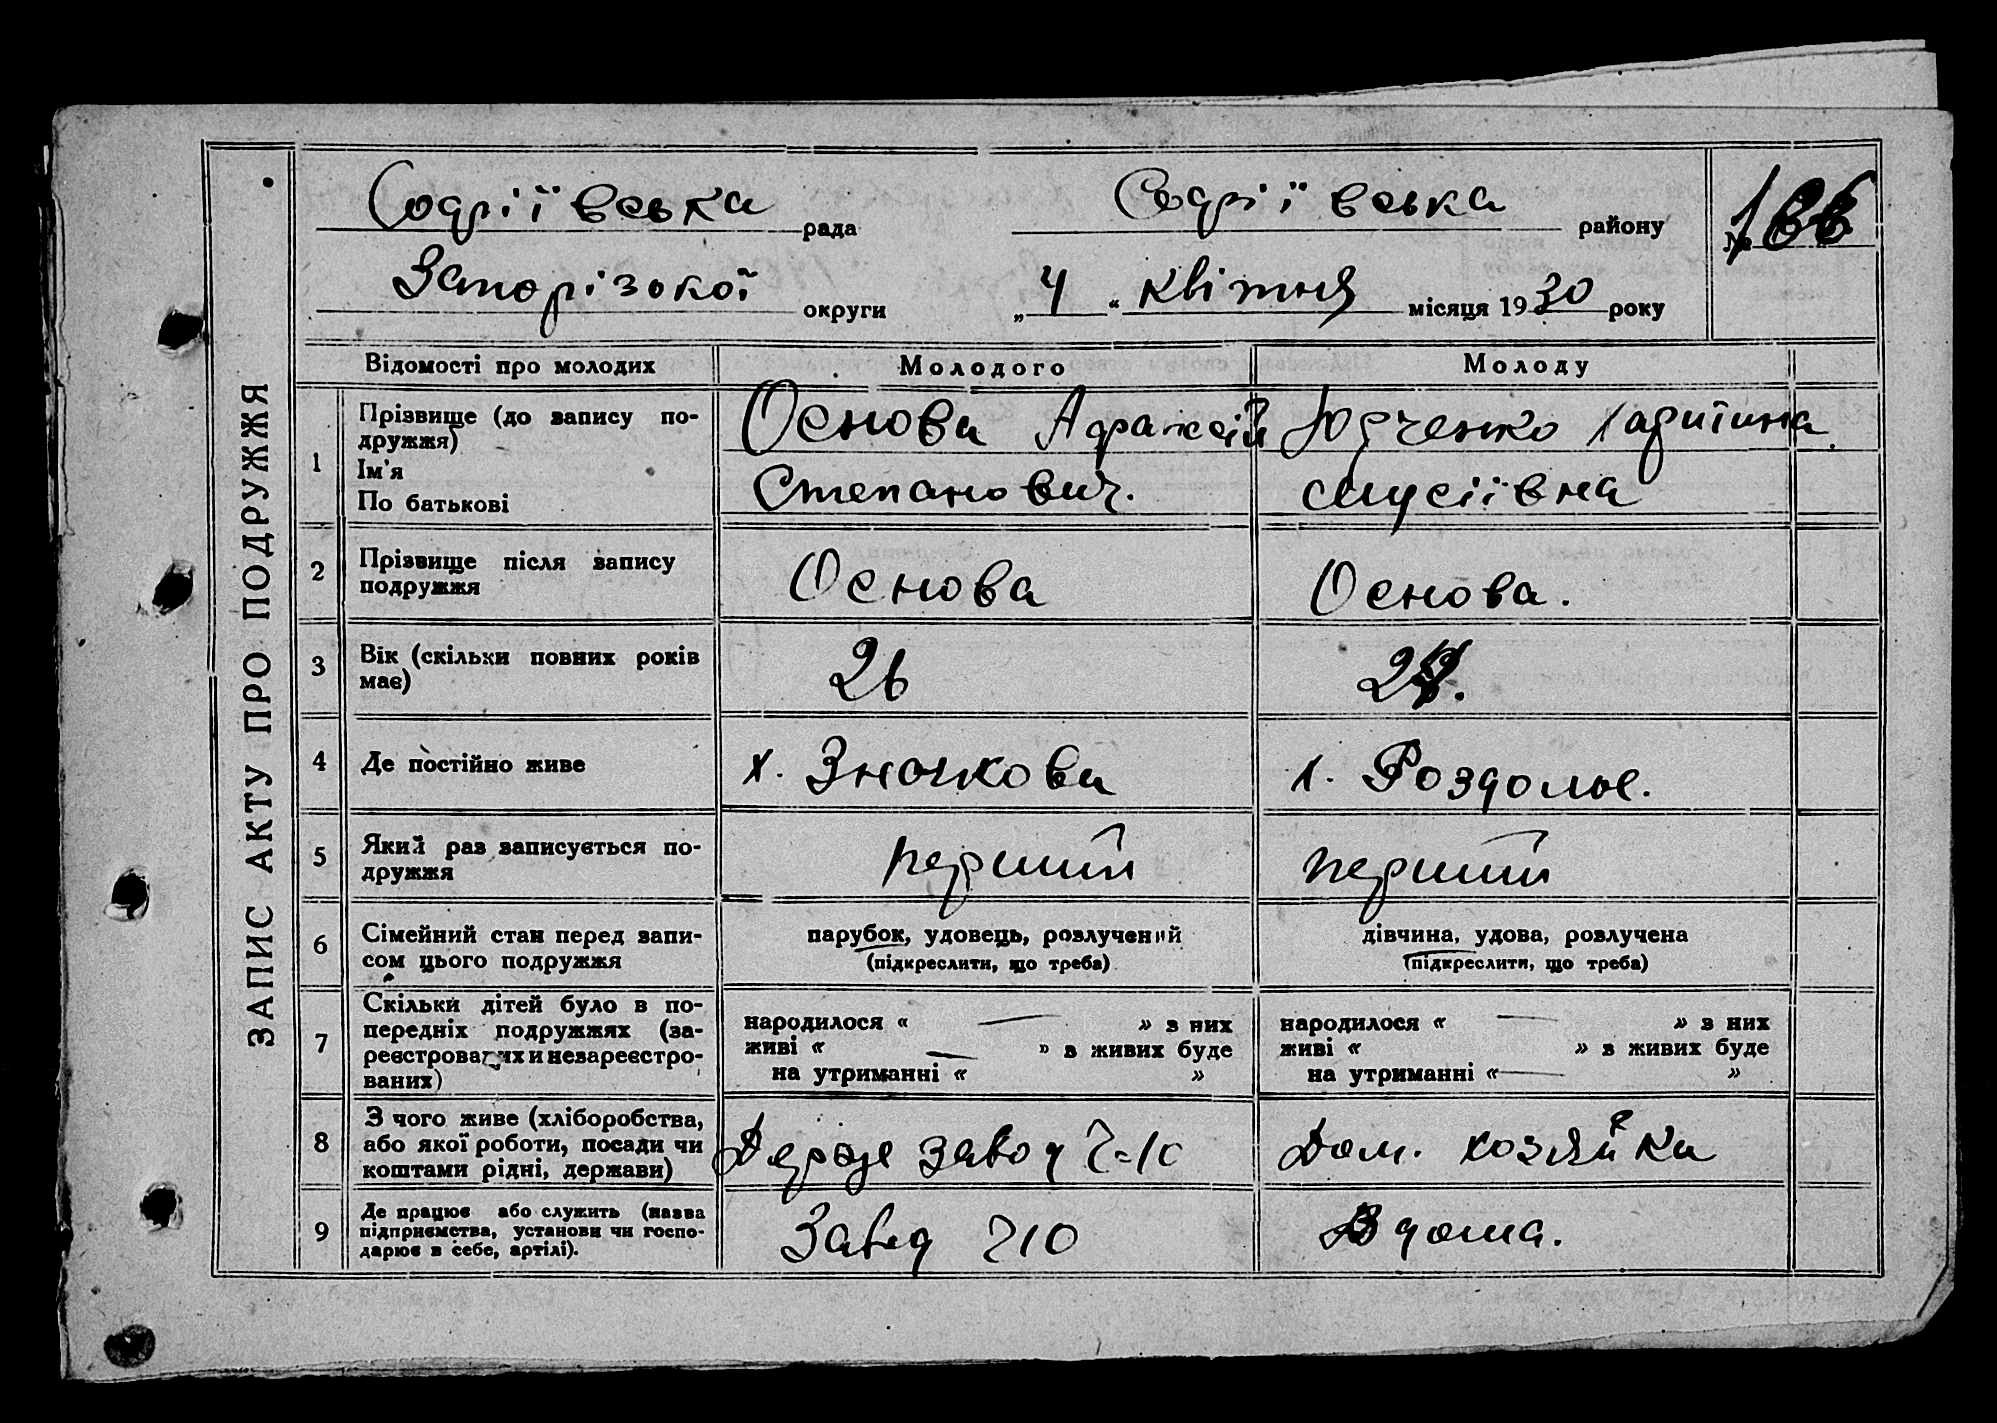 ЗАПИС АКТУ ПРО ПОДРУЖЖЯ
Софіївська рада Софіївська району №
Запорізької округи „ 4 “ квітня місяця 1930 року
Відомості про молодих Молодого Молоду
1 Прізвище (до запису подружжя) Ім'я По батькові
Основа Степанович.
Юрченко Харитина Мусіївна
2 Прізвище після запису подружжя Основа Основа.
3 Вік (скільки повних років має) 26
4 Де постійно живе х. Значкова х. Роздолье.
5 Який раз записується подружжя перший перший
6 Сімейний стан перед записом цього подружжя
парубок, удовець, розлучений (підкреслити, що треба)
дівчина, удова, розлучена (підкреслити, що треба)
7 Скільки дітей було в попередніх подружжях (зареєстрованих и незареєстрованих)
народилося « — » з них
живі « — » з живих буде
на утриманні « »
народилося « — » з них
живі « » з живих буде
на утриманні « — »
8 З чого живе (хліборобства, або якої роботи, посади чи коштами рідні, держави)
Держ завод Дом. хозяйка
9 Де працює або служить (назва підприємства, установи чи господарює в себе, артілі).
Завод Вдома.